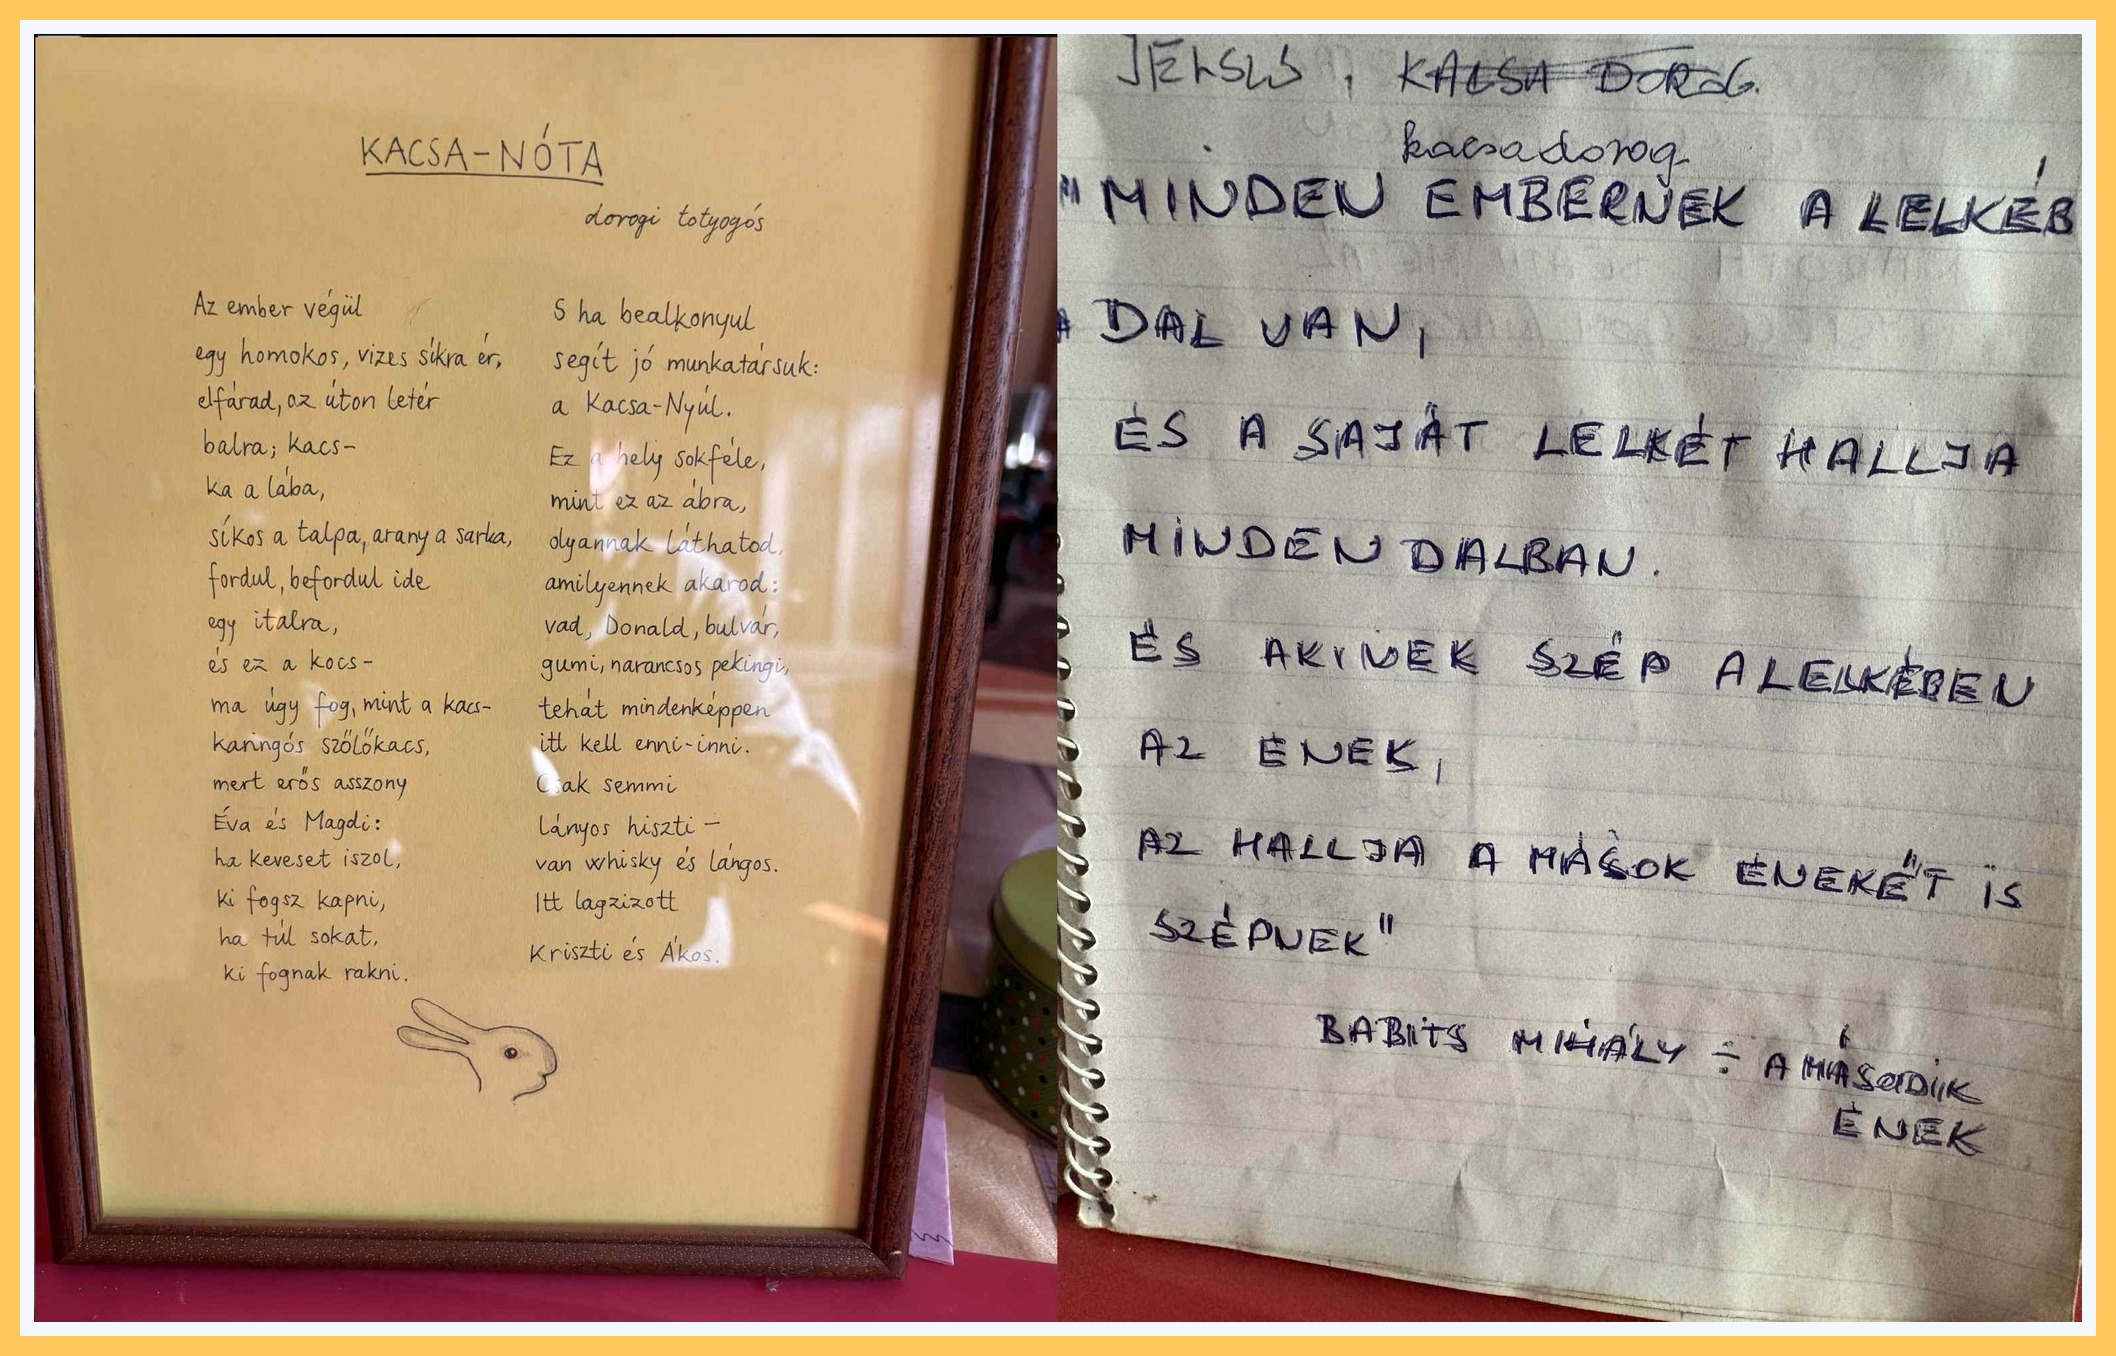 KACSA-NÓTA
dorogi totyogós
Az ember végül
egy homokos, vizes síkra ér,
elfárad, az úton letér
balra; kacs-
ka a lába,
síkos a talpa, arany a sarka,
fordul, befordul ide
egy italra,
és ez a kocs-
ma úgy fog, mint a kacs-
karingós szőlőkacs,
mert erős asszony
Éva és Magdi:
ha keveset iszol,
ki fogsz kapni,
ha túl sokat,
ki fognak rakni.
S ha bealkonyul
segít jó munkatársuk:
a Kacsa-Nyúl.
Ez a hely sokféle,
mint ez az ábra,
olyannak láthatod,
amilyennek akarod:
vad, Donald, bulvár,
gumi, narancsos pekingi,
tehát mindenképpen
itt kell enni-inni.
Csak semmi
lányos hiszti –
van whisky és lángos.
Itt lagzizott
Kriszti és Ákos.
KACSA DOROG.
kacsadorog
"MINDEN EMBERNEK A LELKÉB
DAL VAN,
ÉS A SAJÁT LELKÉT HALLJA
MINDEN DALBAN.
ÉS AKINEK SZÉP A LELKÉBEN
AZ ÉNEK,
AZ HALLJA A MÁSOK ÉNEKÉT IS
SZÉPNEK"
BABITS MIHÁLY ÷ A MÁSODIK
ÉNEK